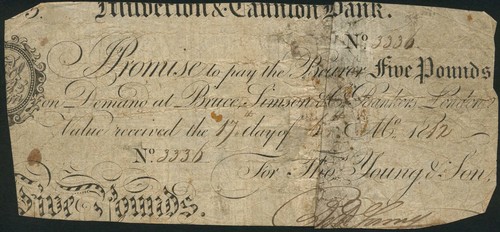 Milverton & Taunton Bank.
No. 3336
I Promise to pay the Bearer Five Pounds
on Demand at Bruce, Simson & Co. Bankers London
Value received the 17 day of 1812
No. 3336
For Thos. Young & Son,
Five Pounds.